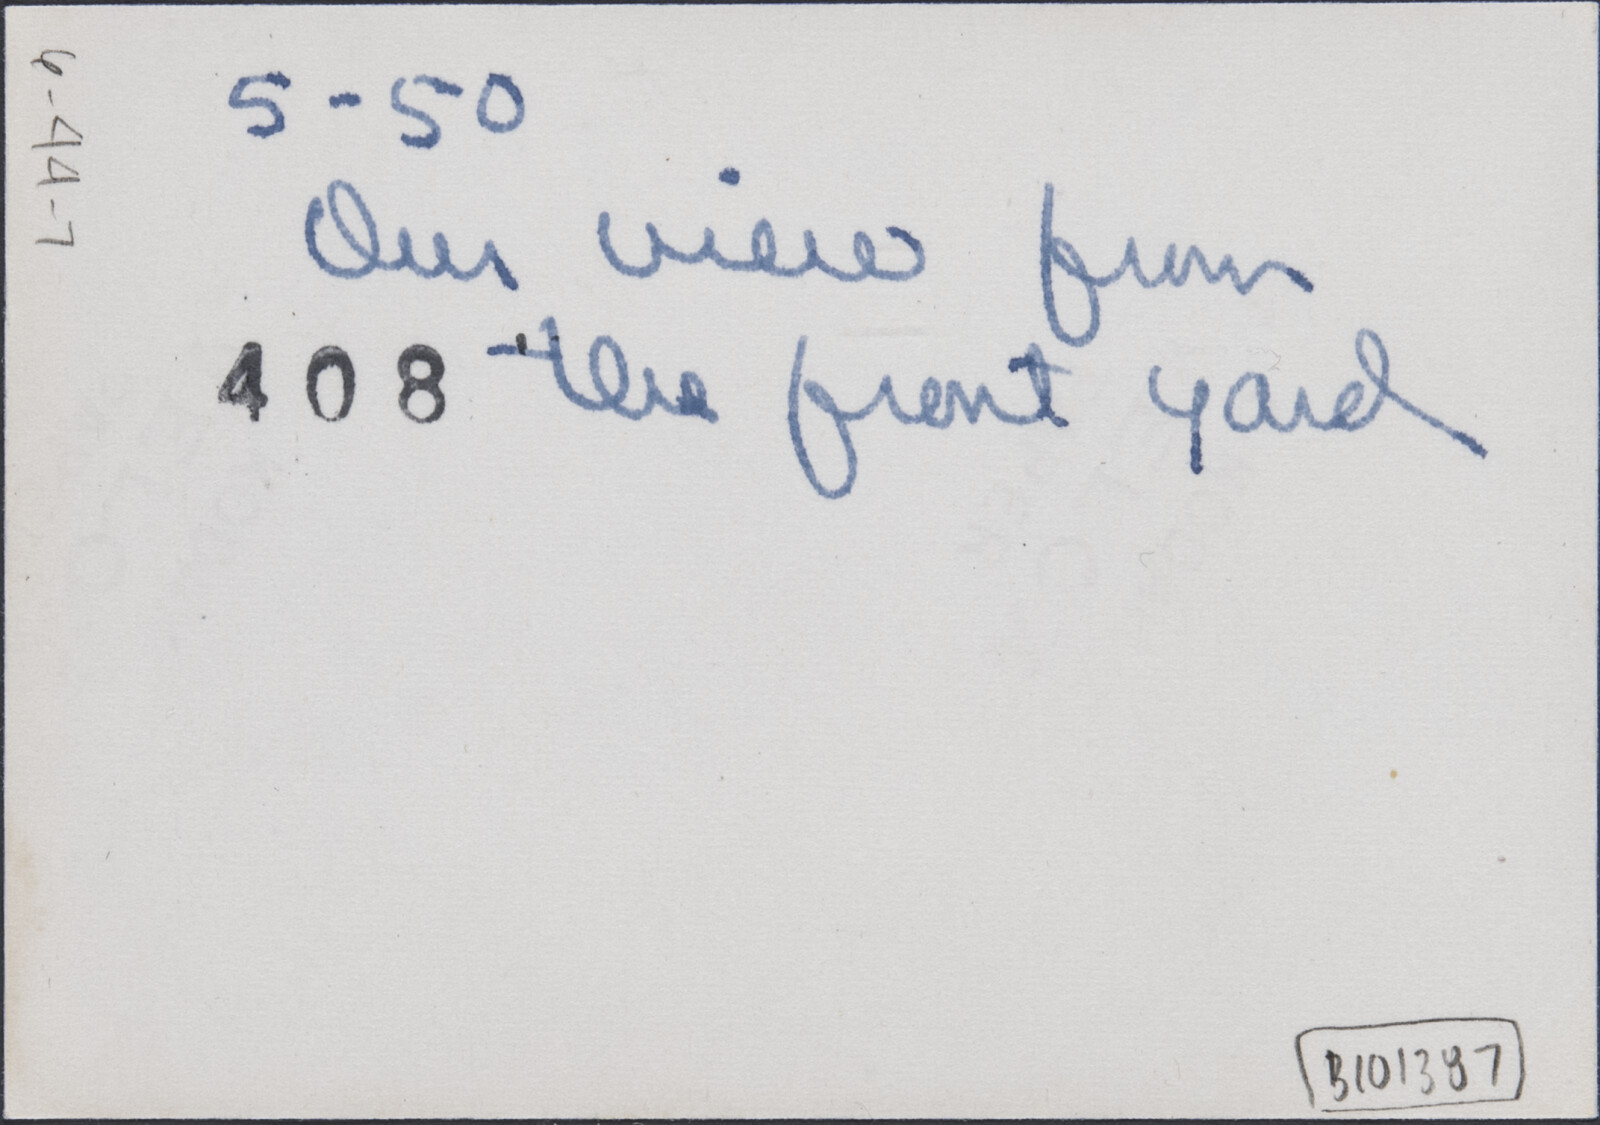 6-44-7
5-50
Our view from
408 the front yard
B101387